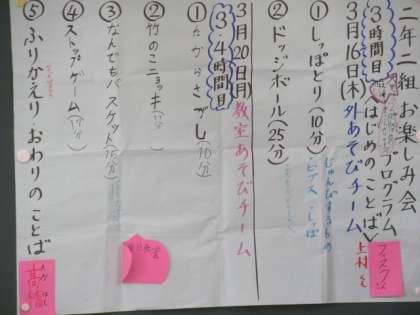 二年二組お楽しみ会
プログラム
3時間目
はじめのことば
上村くん
3月16日(木)外あそびチーム
①しっぽとり(10分)
じゅんびするもの
・ビブス・しっぽ
②ドッジボール(25分)
3月20日(月)教室あそびチーム
3・4時間目
①たからさがし(10分)
②竹のこニョッキ
③なんでもバスケット(15分)
④ストップゲーム
⑤ふりかえり・おわりのことば
高橋